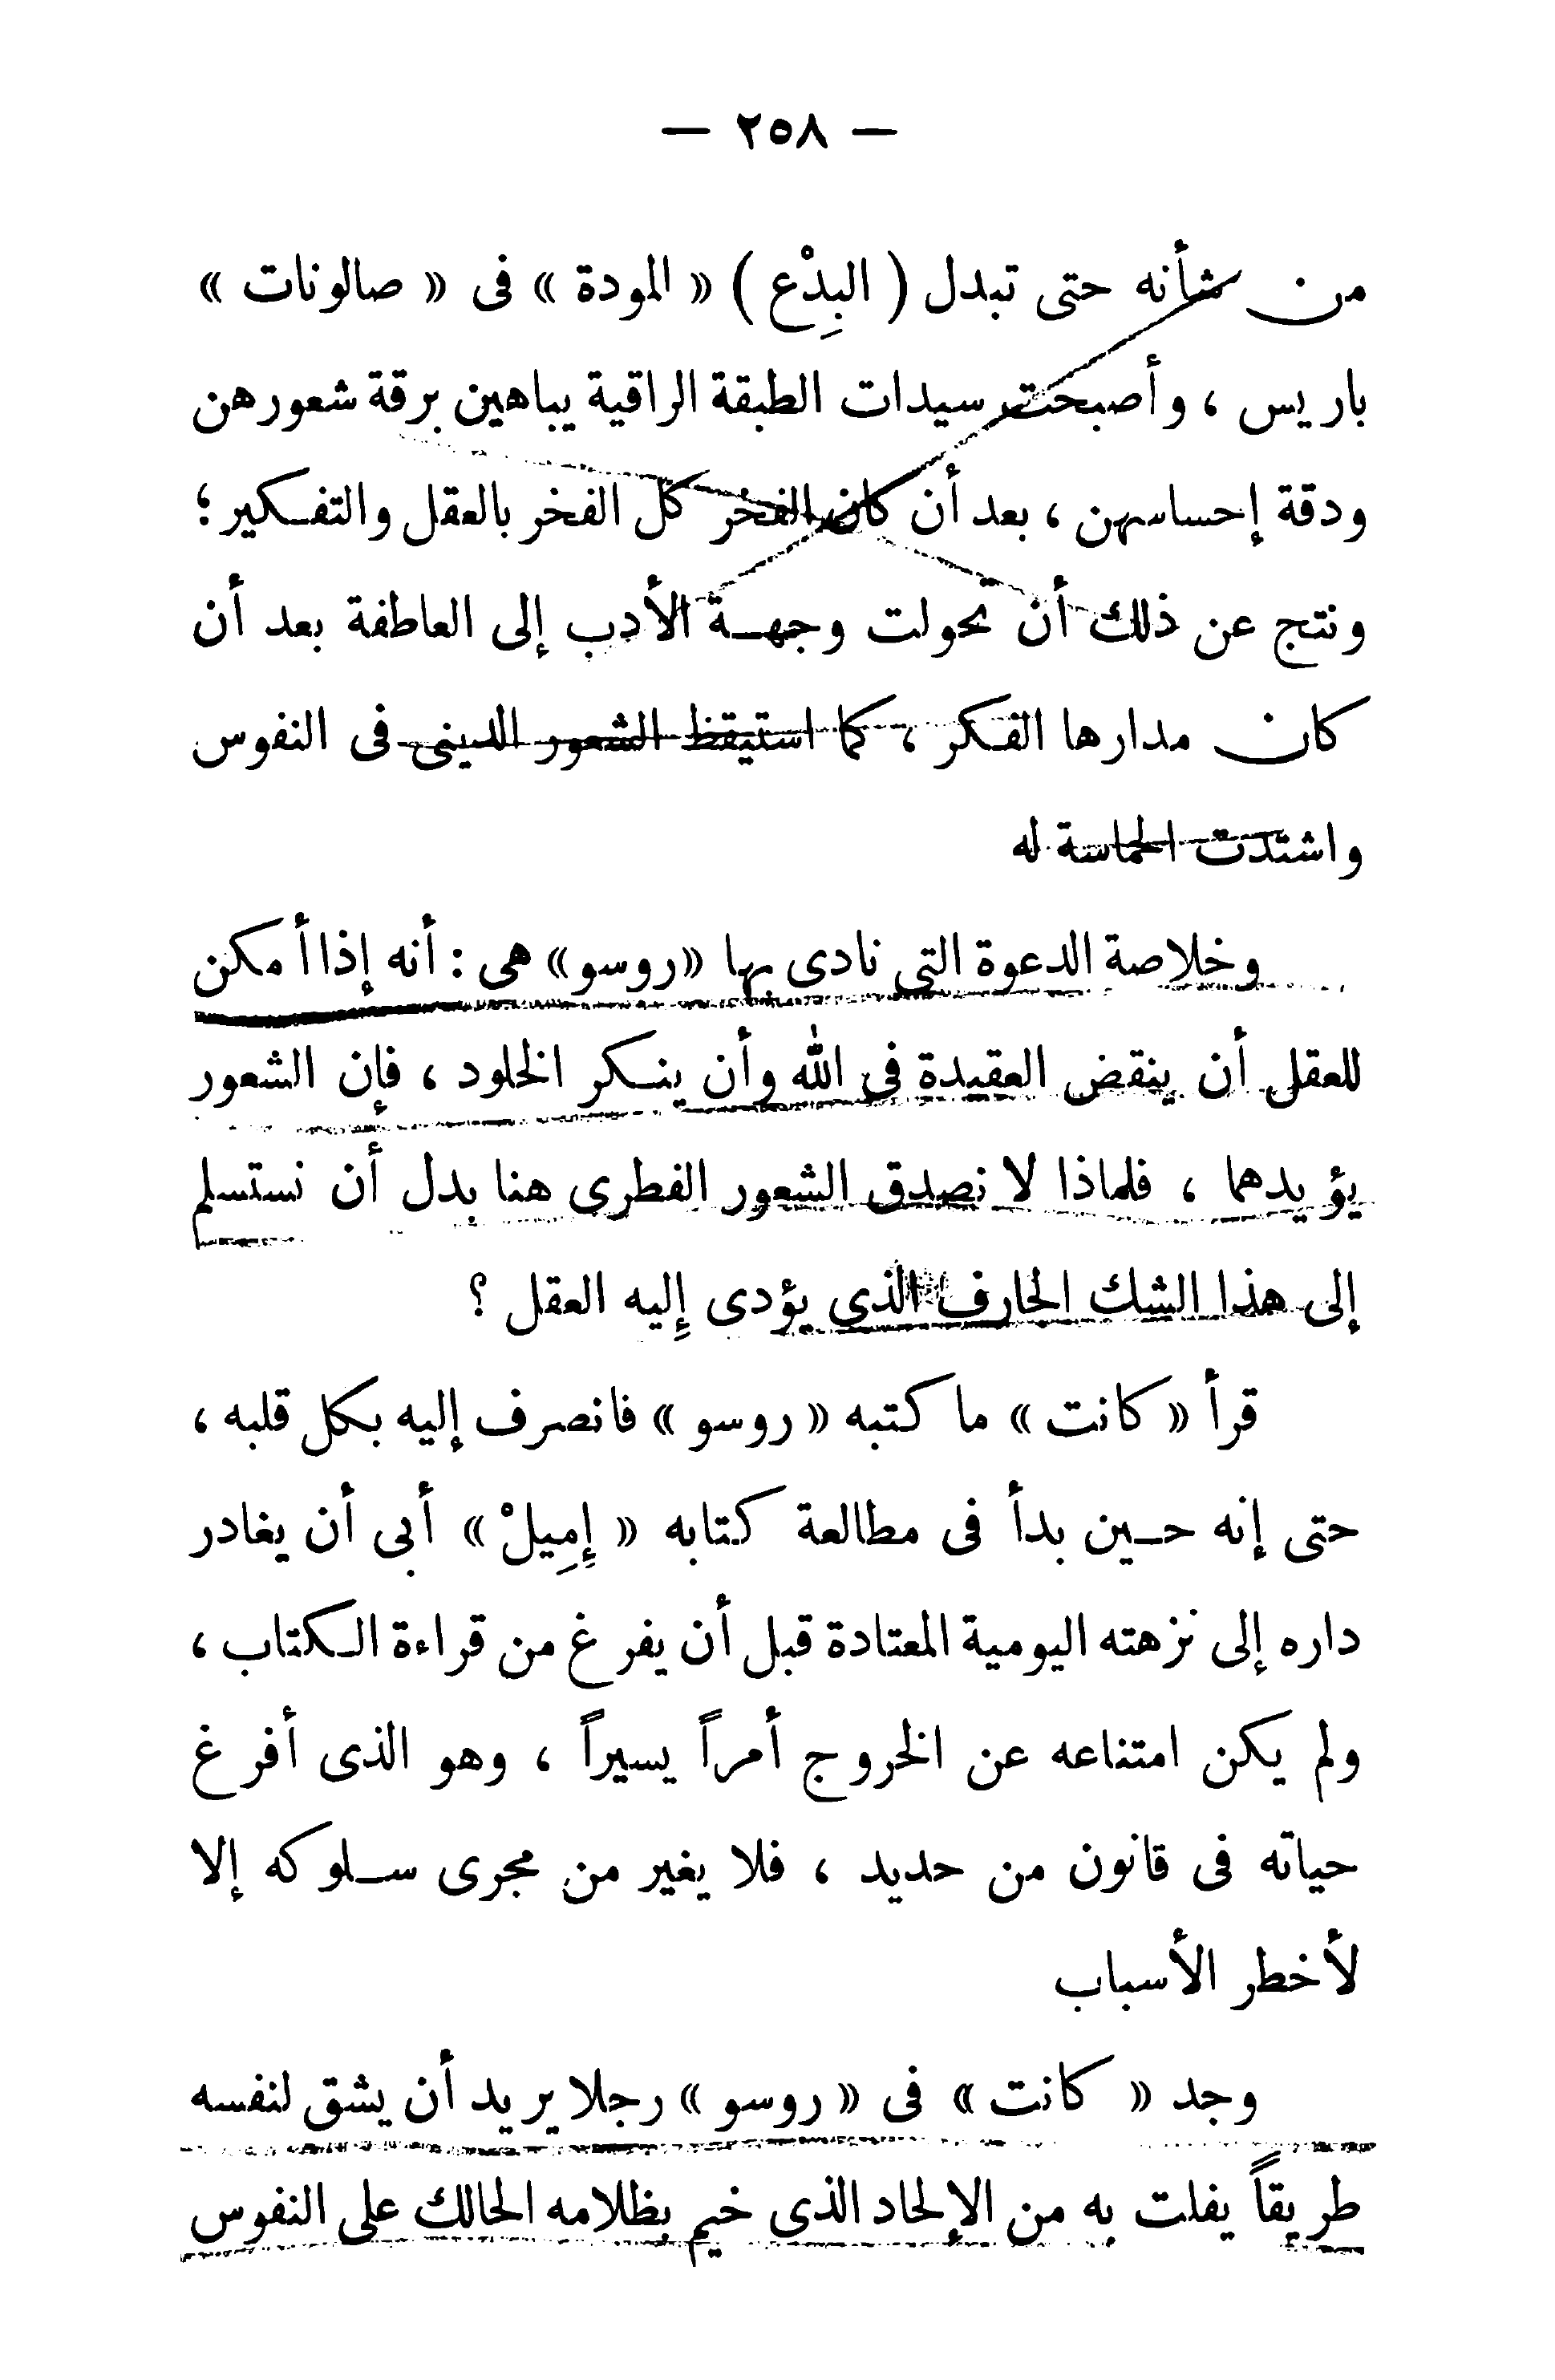 — ٢٥٨ —
من شأنه حتى تبدل ( البِدْع ) « المودة » فى « صالونات »
باريس ، وأصبحت سيدات الطبقة الراقية يباهين برقة شعورهن
ودقة إحساسهن ، بعد أن كان الفخر كل الفخر بالعقل والتفكير ؛
ونتج عن ذلك أن تحولت وجهة الأدب إلى العاطفة بعد أن
كان مدارها الفكر ، كما استيقظ الشعور الدينى فى النفوس
واشتدت الحماسة له
وخلاصة الدعوة التى نادى بها « روسو » هى : أنه إذا أمكن
للعقل أن ينقض العقيدة فى الله وأن ينكر الخلود ، فإن الشعور
يؤيدهما ، فلماذا لا نصدق الشعور الفطرى هنا بدل أن نستسلم
إلى هذا الشك الجارف الذى يؤدى إِليه العقل ؟
قرأ « كانت » ما كتبه « روسو » فانصرف إليه بكل قلبه ،
حتى إنه حين بدأ فى مطالعة كتابه « إِمِيلْ » أبى أن يغادر
داره إلى نزهته اليومية المعتادة قبل أن يفرغ من قراءة الكتاب ،
ولم يكن امتناعه عن الخروج أمراً يسيراً ، وهو الذى أفرغ
حياته فى قانون من حديد ، فلا يغير من مجرى سلوكه إلا
لأخطر الأسباب
وجد « كانت » فى « روسو » رجلا يريد أن يشق لنفسه
طريقاً يفلت به من الإلحاد الذى خيم بظلامه الحالك على النفوس